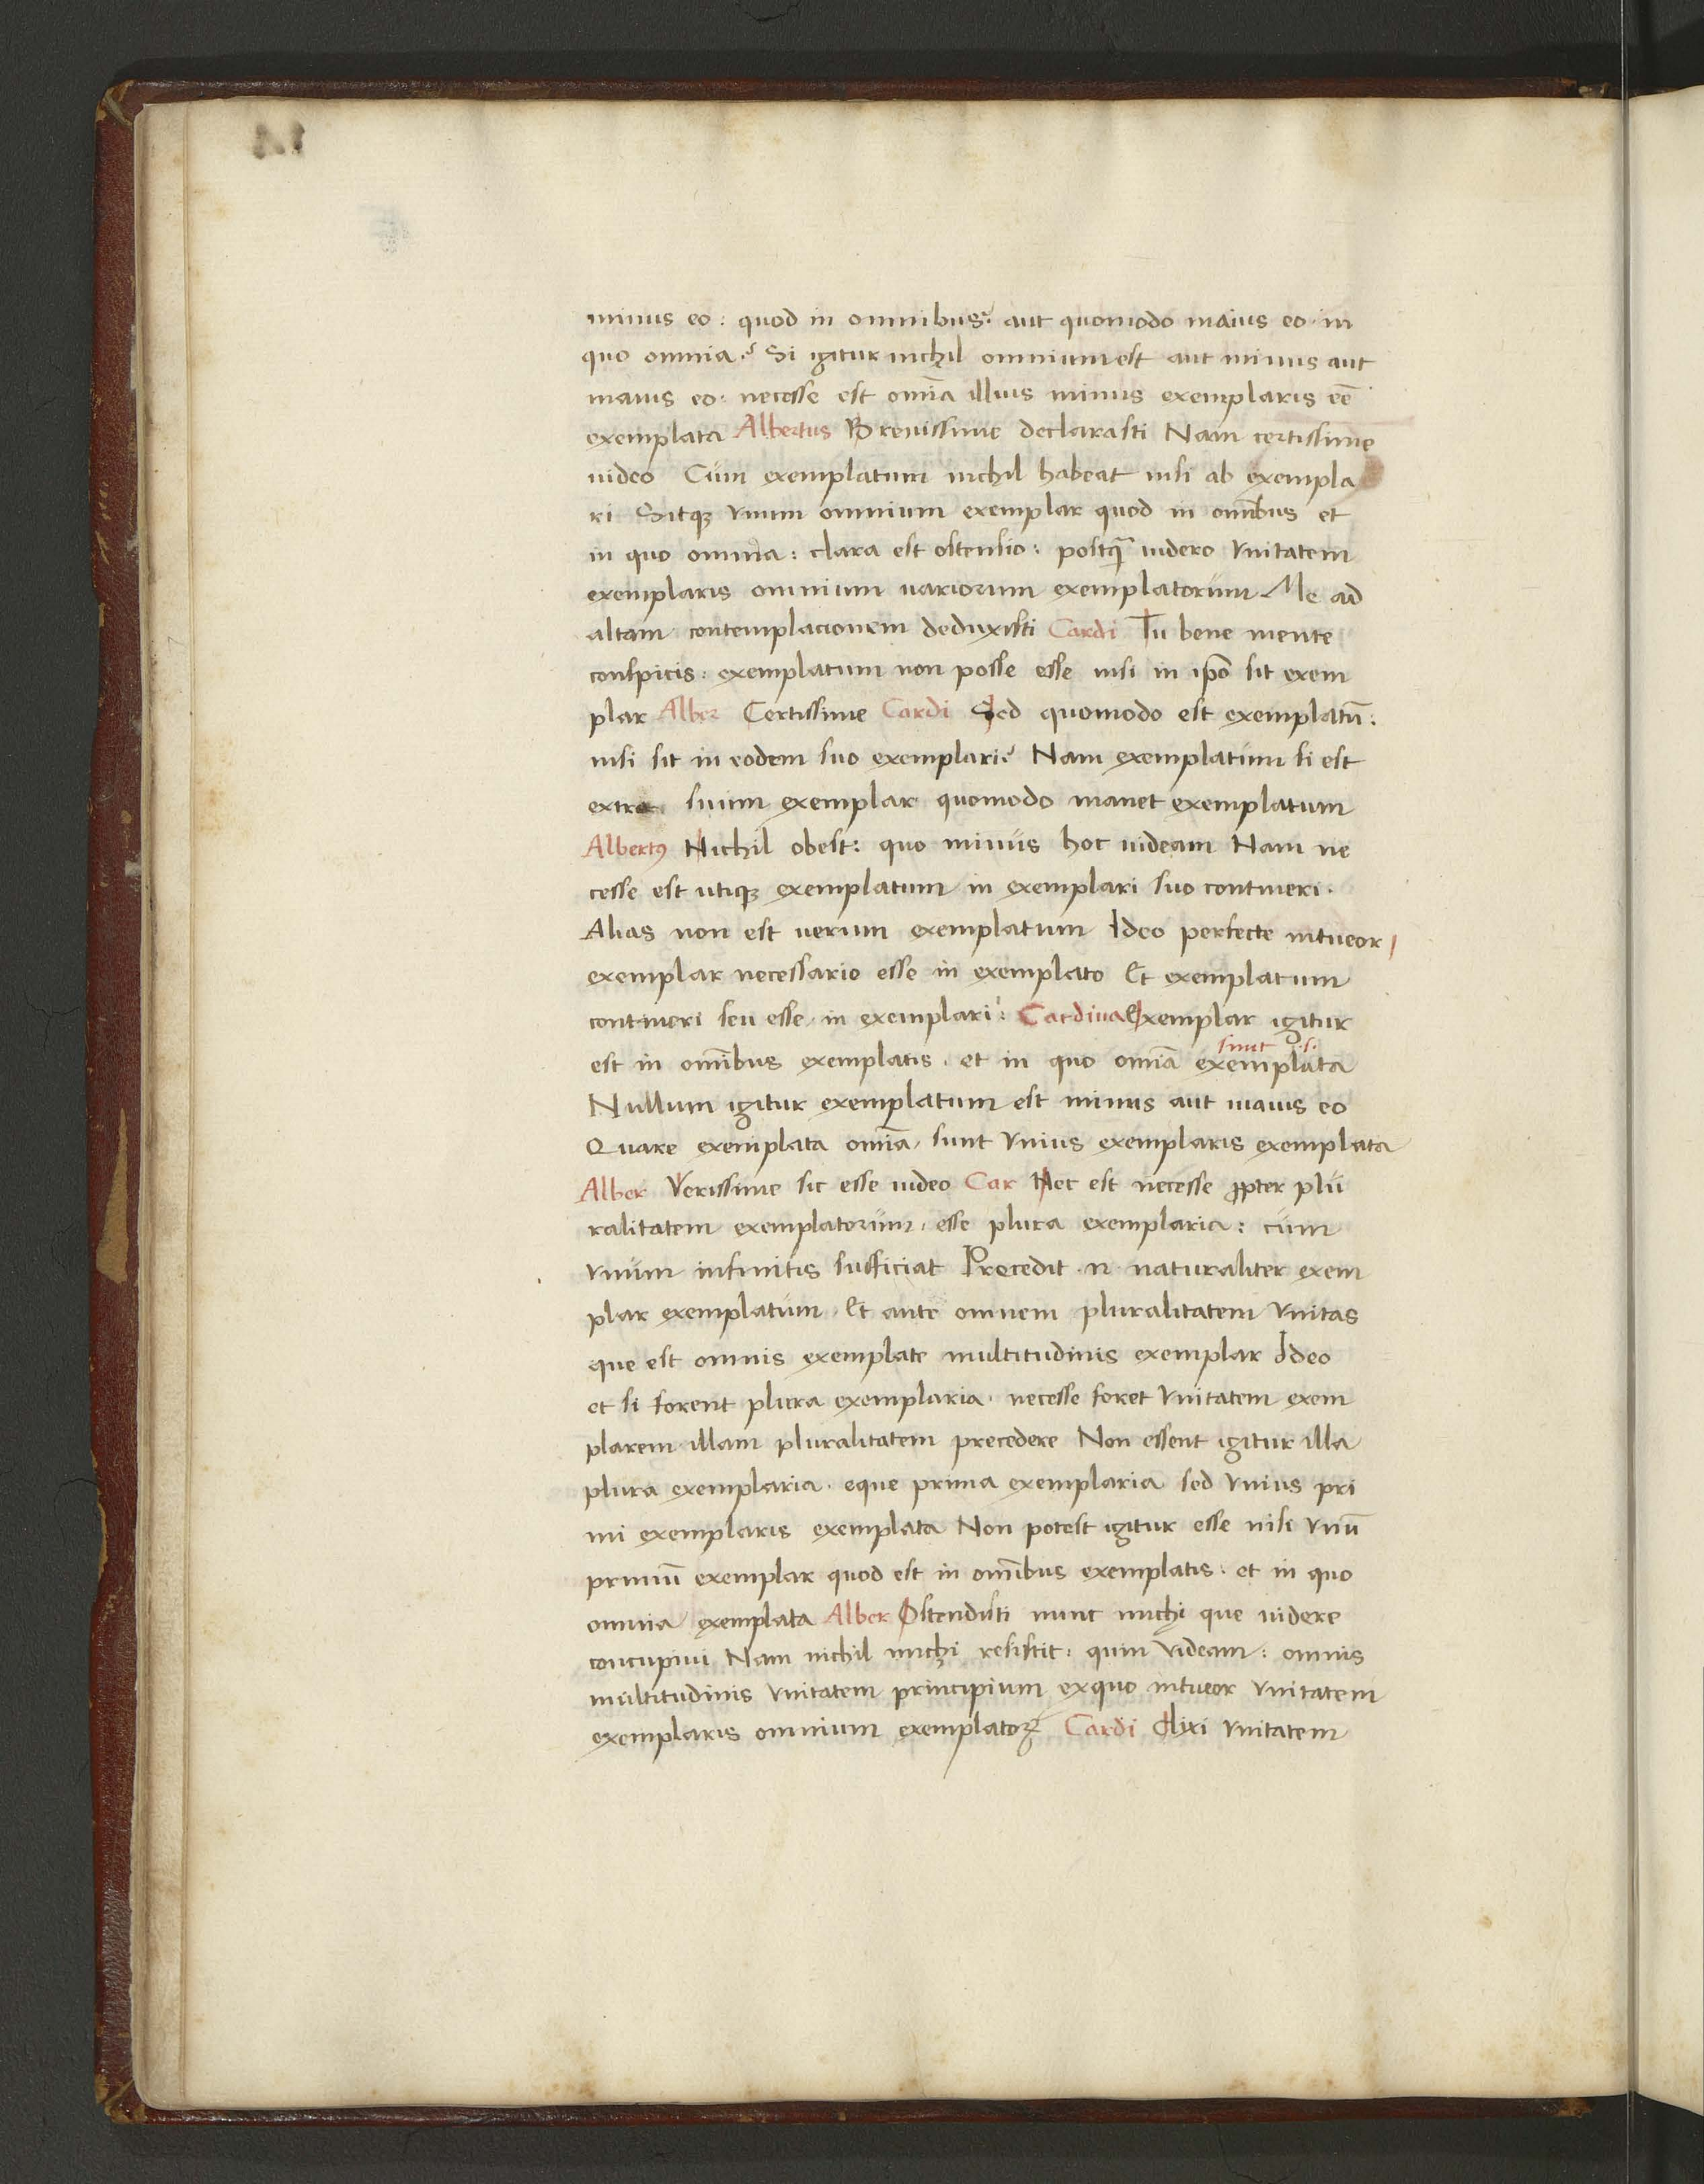 minus eo: quod in omnibus? aut quomodo maius eo in
quo omnia? Si igitur nichil omnium est aut minus aut
maius eo. necesse est oĩa illius minus exemplaris eē
exemplata Albertus Breuissime declarasti Nam certissime
uideo Cum exemplatum nichil habeat nisi ab exempla
ri Sitqꝫ vnum omnium exemplar quod in omĩbus et
in quo omnia: clara est ostensio: postq̃ uidero vnitatem
exemplaris omnium uariorum exemplatorum Me ad
altam contemplacionem deduxisti Cardi Tu bene mente
conspicis: exemplatum non posse esse nisi in ipō sit exem
plar Alber Certissime Cardi Sed quomodo est exemplatū:
nisi sit in eodem suo exemplari? Nam exemplatum si est
extra suum exemplar quomodo manet exemplatum
Albertꝰ Nichil obest: quo minus hoc uideam Nam ne
cesse est utiqꝫ exemplatum in exemplari suo contineri.
Alias non est uerum exemplatum Ideo perfecte intueor
exemplar necessario esse in exemplato Et exemplatum
contineri seu esse in exemplari: Cardina Exemplar igitur
est in omĩbus exemplatis. et in quo omĩa sunt .s. exemplata
Nullum igitur exemplatum est minus aut maius eo
Quare exemplata omĩa sunt vnius exemplaris exemplata
Alber Verissime sic esse uideo Car Nec est necesse ꝓpter plu
ralitatem exemplatorum esse plura exemplaria: cum
vnum infinitis sufficiat Precedit .n. naturaliter exem
plar exemplatum. Et ante omnem pluralitatem vnitas
que est omnis exemplate multitudinis exemplar Ideo
et si forent plura exemplaria. necesse foret vnitatem exem
plarem illam pluralitatem precedere Non essent igitur illa
plura exemplaria. eque prima exemplaria sed vnius pri
mi exemplaris exemplata Non potest igitur esse nisi vnū
primū exemplar quod est in omĩbus exemplatis. et in quo
omnia exemplata Alber Ostendisti nunc michi que uidere
concupiui Nam nichil michi resistit: quin videam: omnis
multitudinis vnitatem principium ex quo intueor vnitatem
exemplaris omnium exemplatoꝝ Cardi dixi vnitatem